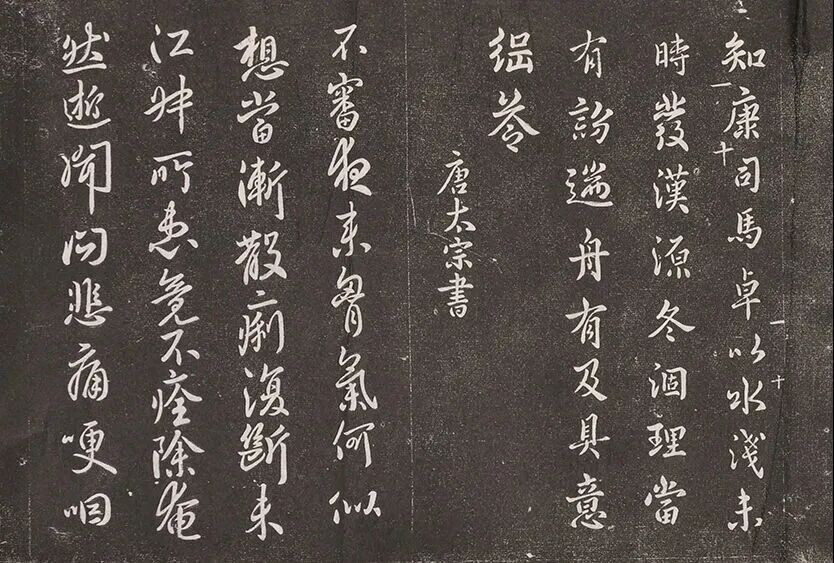 知康司馬卓以水淺未
時發漢源冬涸理當
有遄舟有及具意
唐太宗書
不審夜來胷氣何似
想當漸散痢復斷未
江妹所患竟不痊除奄
然逝聞問悲痛哽咽